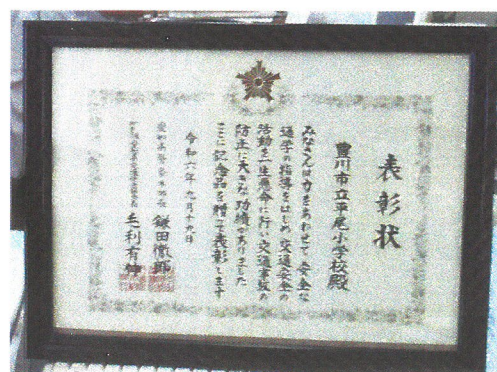 表彰状
豊川市立平尾小学校殿
みなさんは力をあわせて安全な
通学の指導をはじめ交通安全の
活動を一生懸命に行い交通事故の
防止に大きな功績がありました
ここに記念品を贈って表彰します
令和六年九月十九日
愛知県警察本部長 鎌田徹郎
毛利有伸